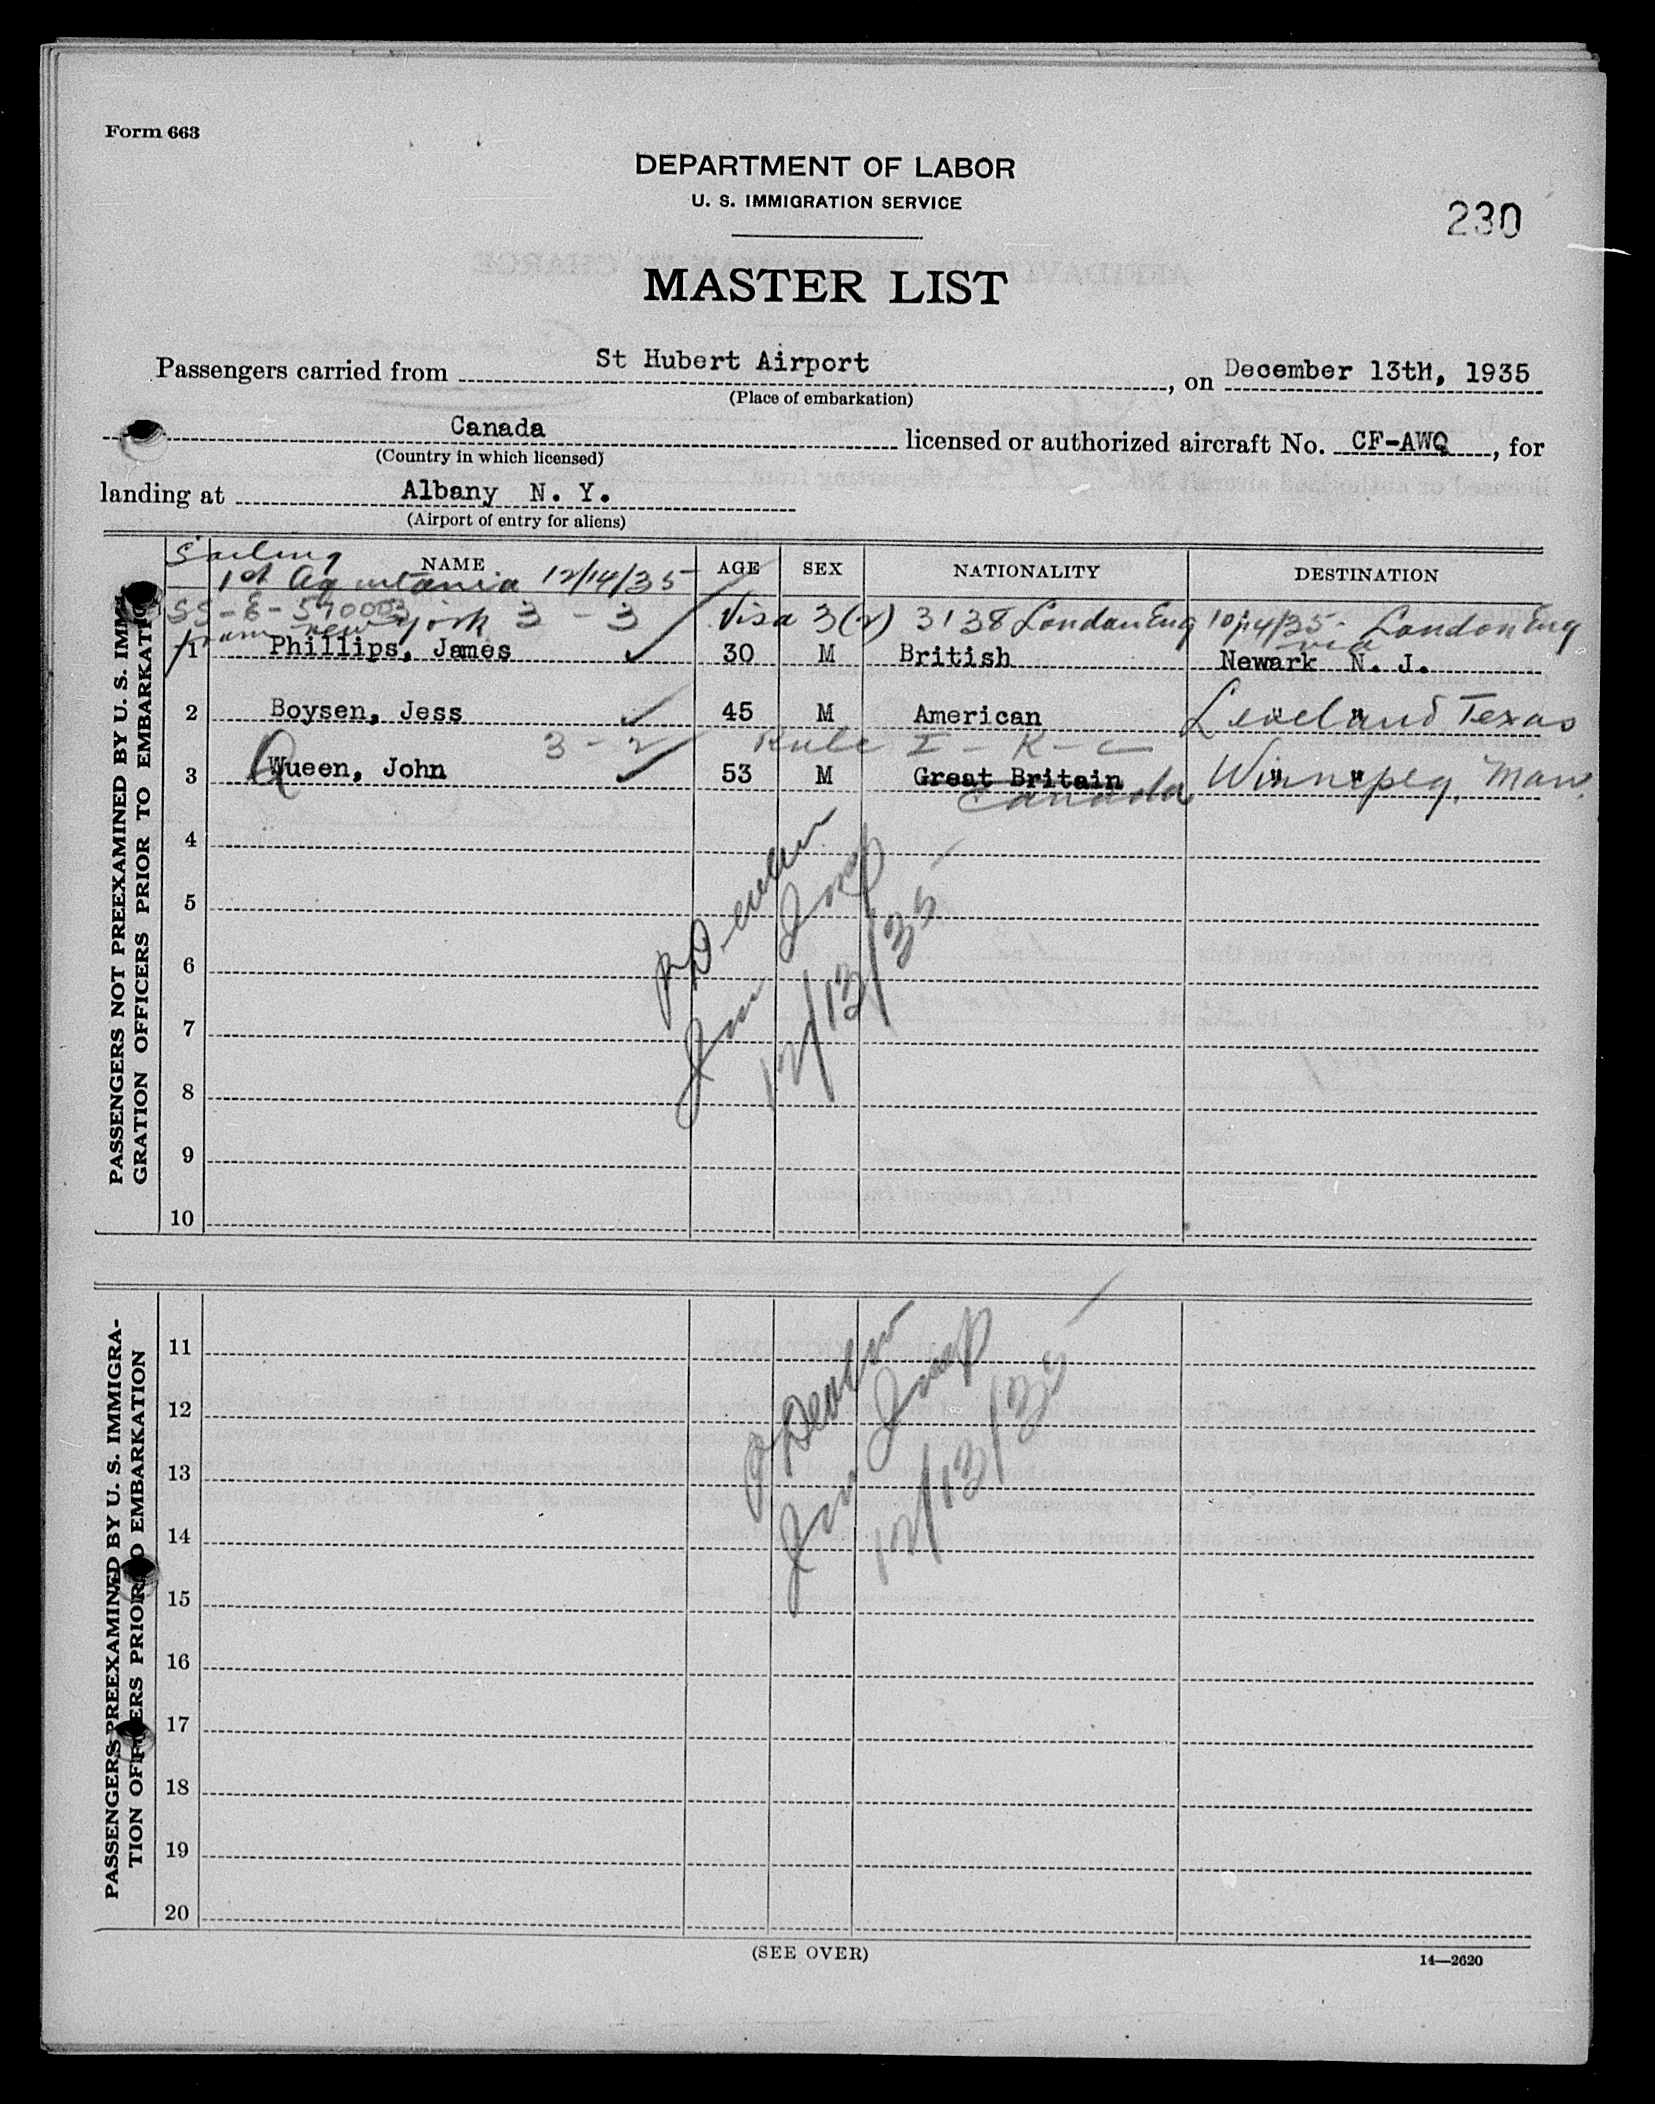 Form 663
DEPARTMENT OF LABOR
U. S. IMMIGRATION SERVICE
230
MASTER LIST
Passengers carried from St Hubert Airport, on December 13tH, 1935
(Place of embarkation)
Canada licensed or authorized aircraft No. CF-AWQ, for
(Country in which licensed)
landing at Albany N. Y.
(Airport of entry for aliens)
PASSENGERS NOT PREEXAMINED BY U. S. IMMI-
GRATION OFFICERS PRIOR TO EMBARKATIO
Sailing
NAME AGE SEX NATIONALITY DESTINATION
1st Aquitania 12/14/35
SS-E-570003 3-3 Visa 3(2) 3138 London Eng 10/14/35 London Eng
from new york via
1 Phillips, James 30 M British Newark N. J.
2 Boysen, Jess 45 M American " " Leveland Texas
3-2 Rule I-K-C
3 Queen, John 53 M Great Britain " " Winnipeg, Man.
Canada
4
5
6
7
8
9
10
Imm Insp
12/13/35
PASSENGERS PREEXAMINED BY U. S. IMMIGRA-
TION OFFICERS PRIOR TO EMBARKATION
11
12
13
14
15
16
17
18
19
20
Imm Insp
12/13/35
(SEE OVER)
14—2620